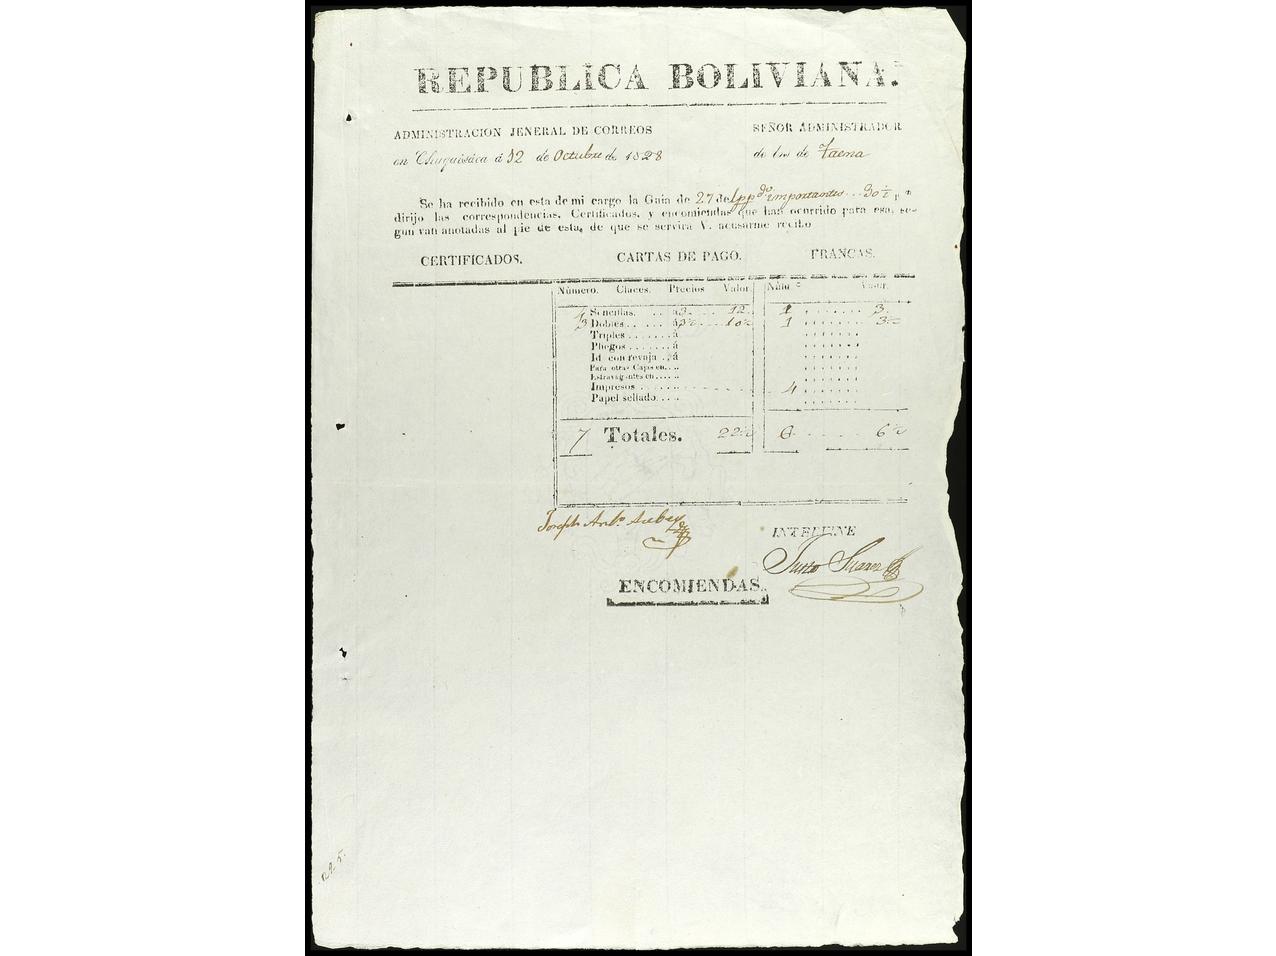 REPUBLICA BOLIVIANA.
ADMINISTRACION JENERAL DE CORREOS
en Chuquisaca á 12 de Octubre de 1828
SEÑOR ADMINISTRADOR
de los de Tacna
Se ha recibido en esta de mi cargo la Guia de 27 de importantes ... 30 1/2
dirijo las correspondencias, Certificados, y encomiendas que han ocurrido para esa, se-
gun van anotadas al pie de esta, de que se servirá V. acusarme recibo
CERTIFICADOS. CARTAS DE PAGO. FRANCAS.
Número. Claces. Precios Valor. Núm.º Valor.
4 Sencillas. . . . á 3. . . . . 12. 1 . . . . . . 3.
3 Dobles. . . . á 3 1/2 . . . . 10 1/2 1 . . . . . . 3 1/2
Triples . . . . . . . á
Pliegos . . . . . . . á
Id con revaja . . á
Para otras Cajas en. . . .
Estravagantes en . . . . .
Impresos . . . . . . 4
Papel sellado. . . . .
7 Totales. 22 1/2 6 . . . . . 6 1/2
Joseph Anto.
INTERVINE
Justo Suarez
ENCOMIENDAS.